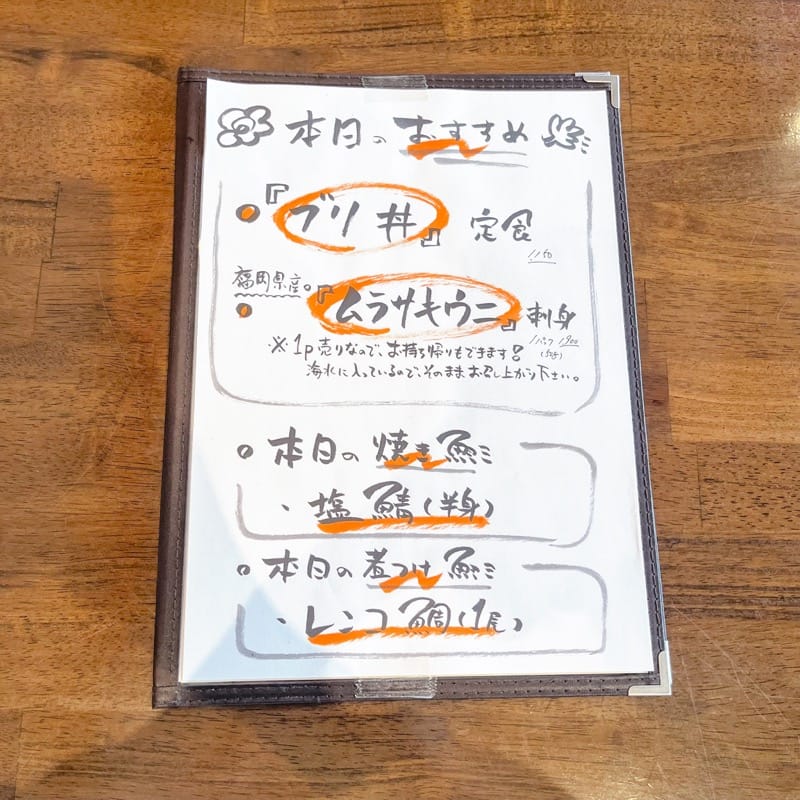 本日のおすすめ
『ブリ丼』定食
1150
福岡県産。
『ムラサキウニ』刺身
1パック 1900
※1p売りなので、お持ち帰りもできます!
海水に入っているので、そのままお召し上がり下さい。
本日の焼き魚
・塩鯖(半身)
本日の煮つけ魚
・レンコ鯛(1尾)